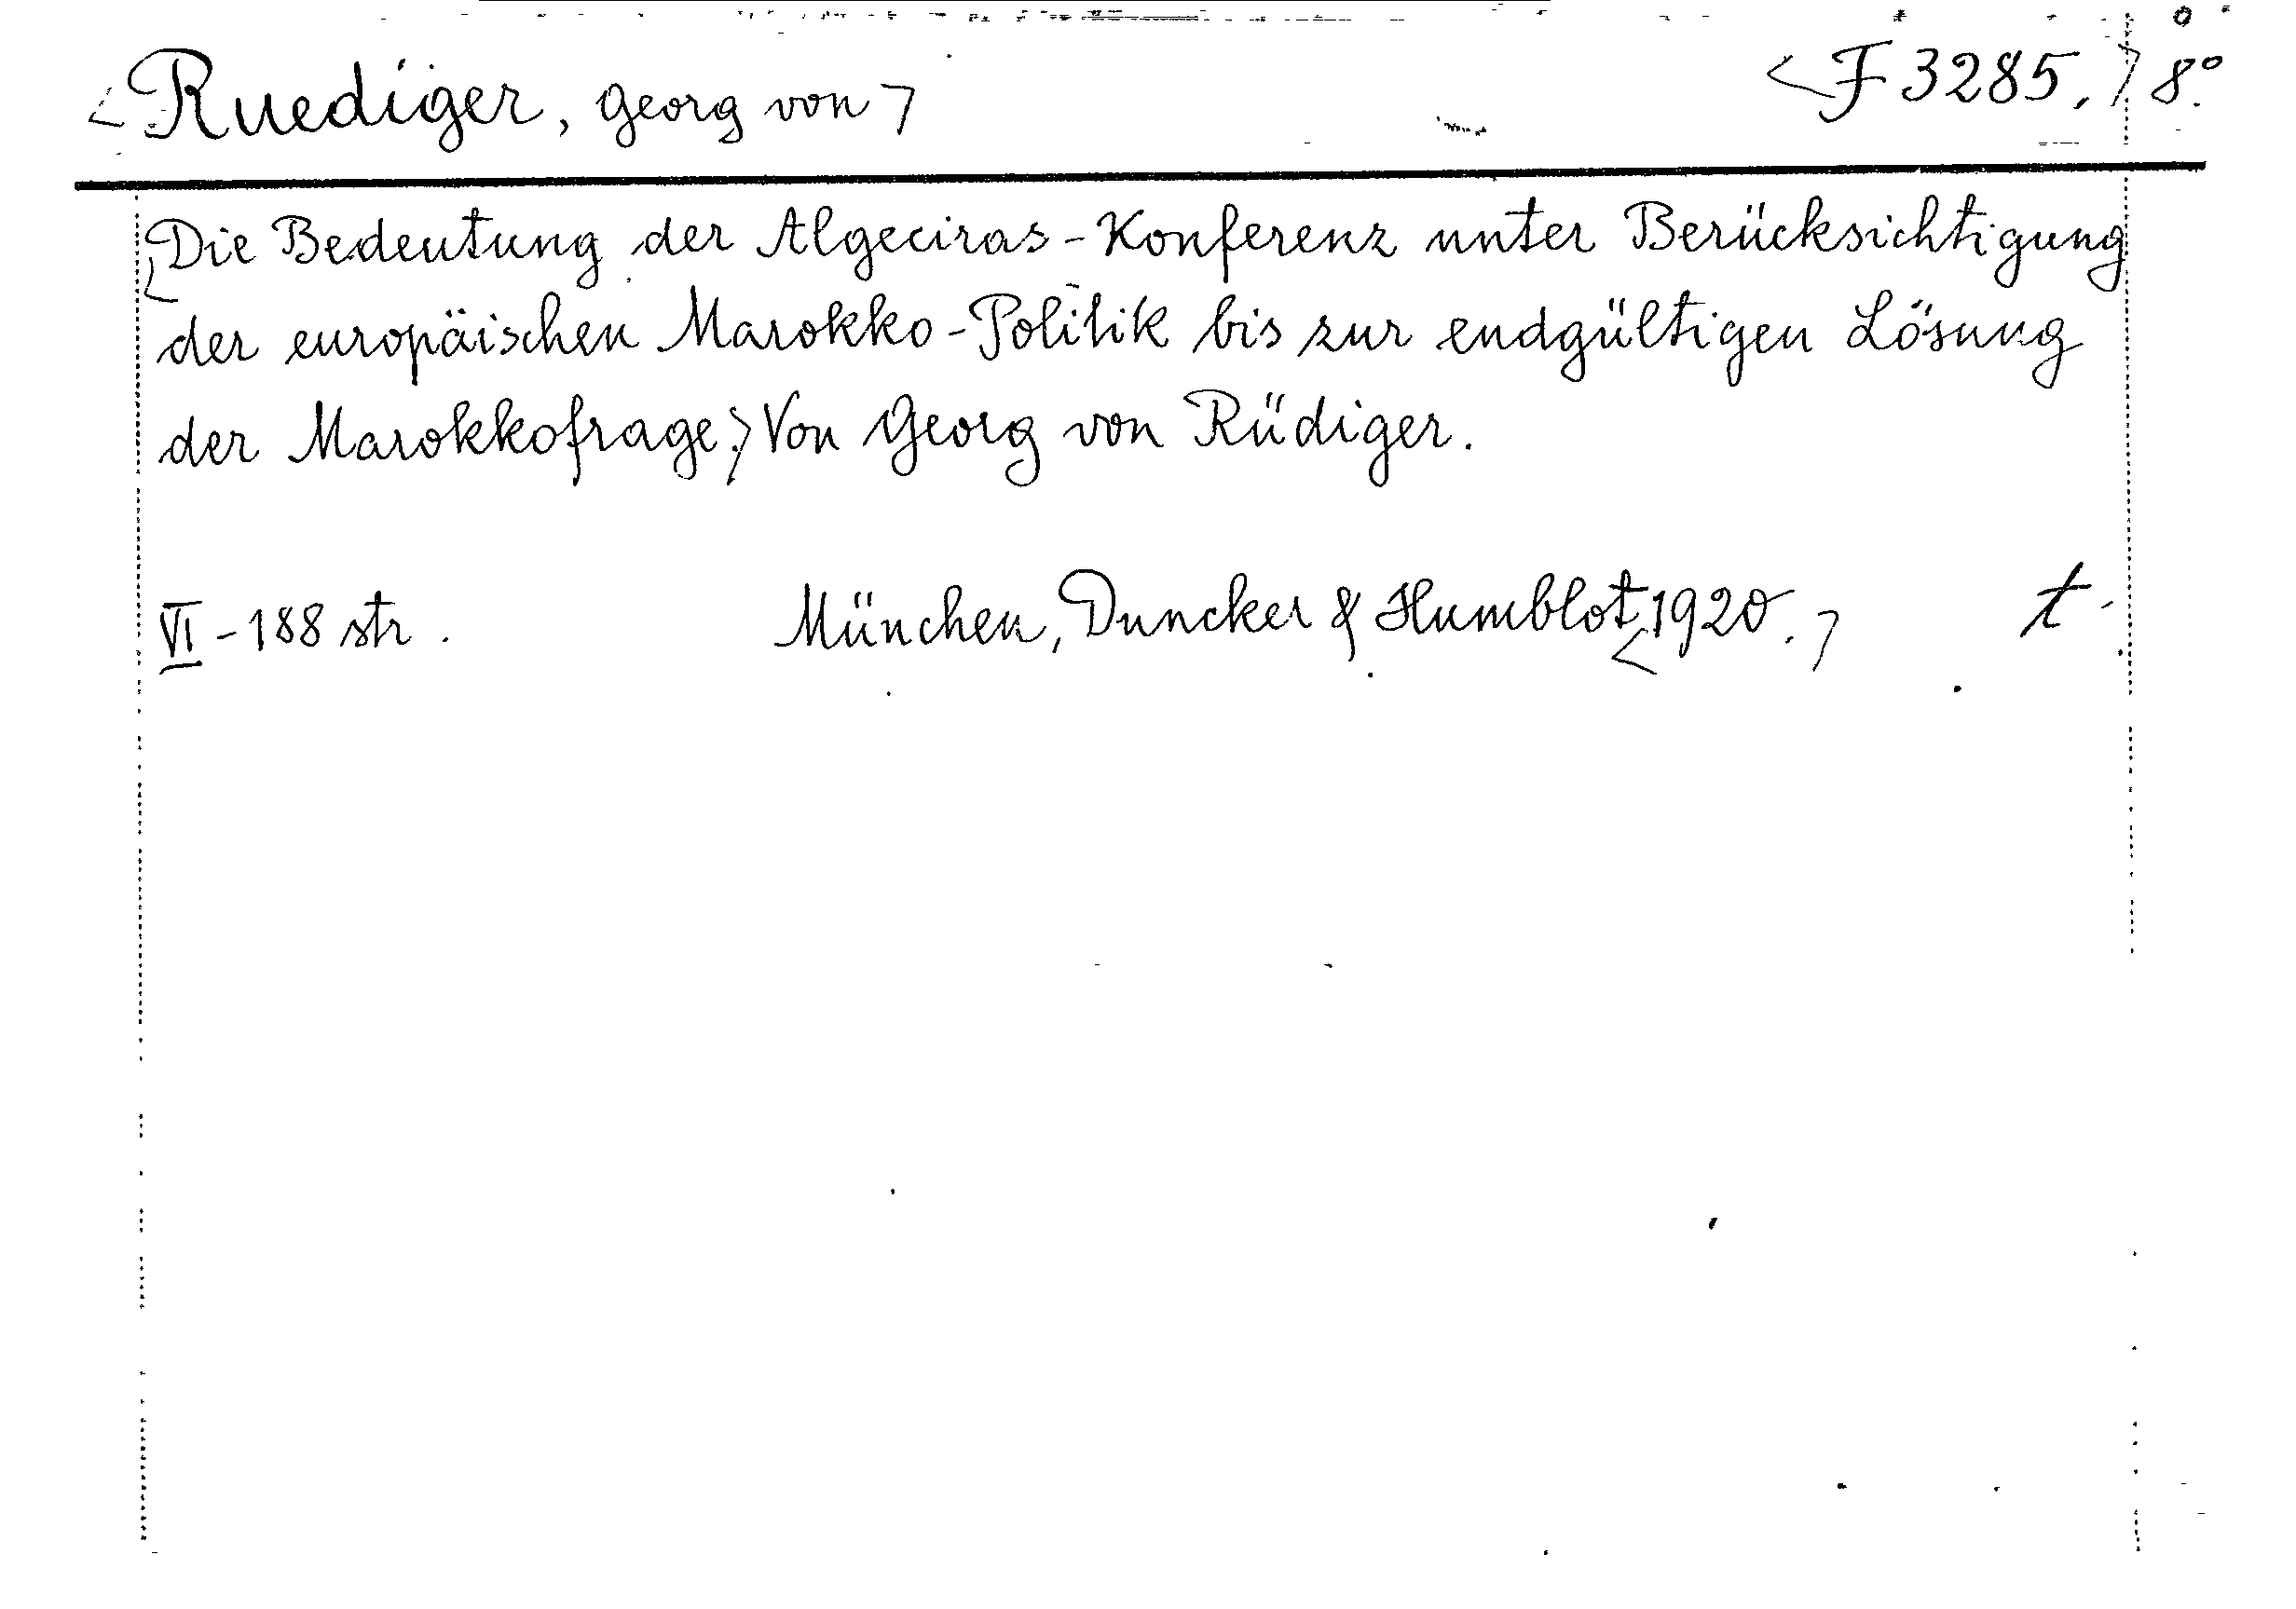 <Ruediger, Georg von> <F 3285.> 8°.
<Die Bedeutung der Algeciras-Konferenz unter Berücksichtigung
der europäischen Marokko-Politik bis zur endgültigen Lösung
der Marokkofrage.> Von Georg von Rüdiger.
VI - 188 str. München, Duncker & Humblot <1920.> t.